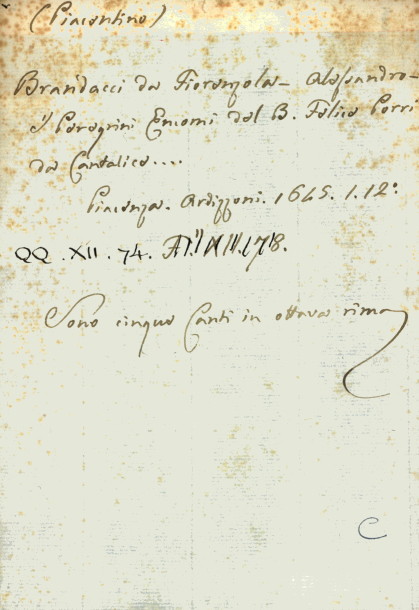 (Piacentino)
Brandacci da Fiorenzola - Alessandro -
I Peregrini Encomi del B. Felice Porri
da Cantalice....
Piacenza. Ardizzoni. 1645. 1. 12º
QQ. XII. 74.
Sono cinque Canti in ottava rima
C